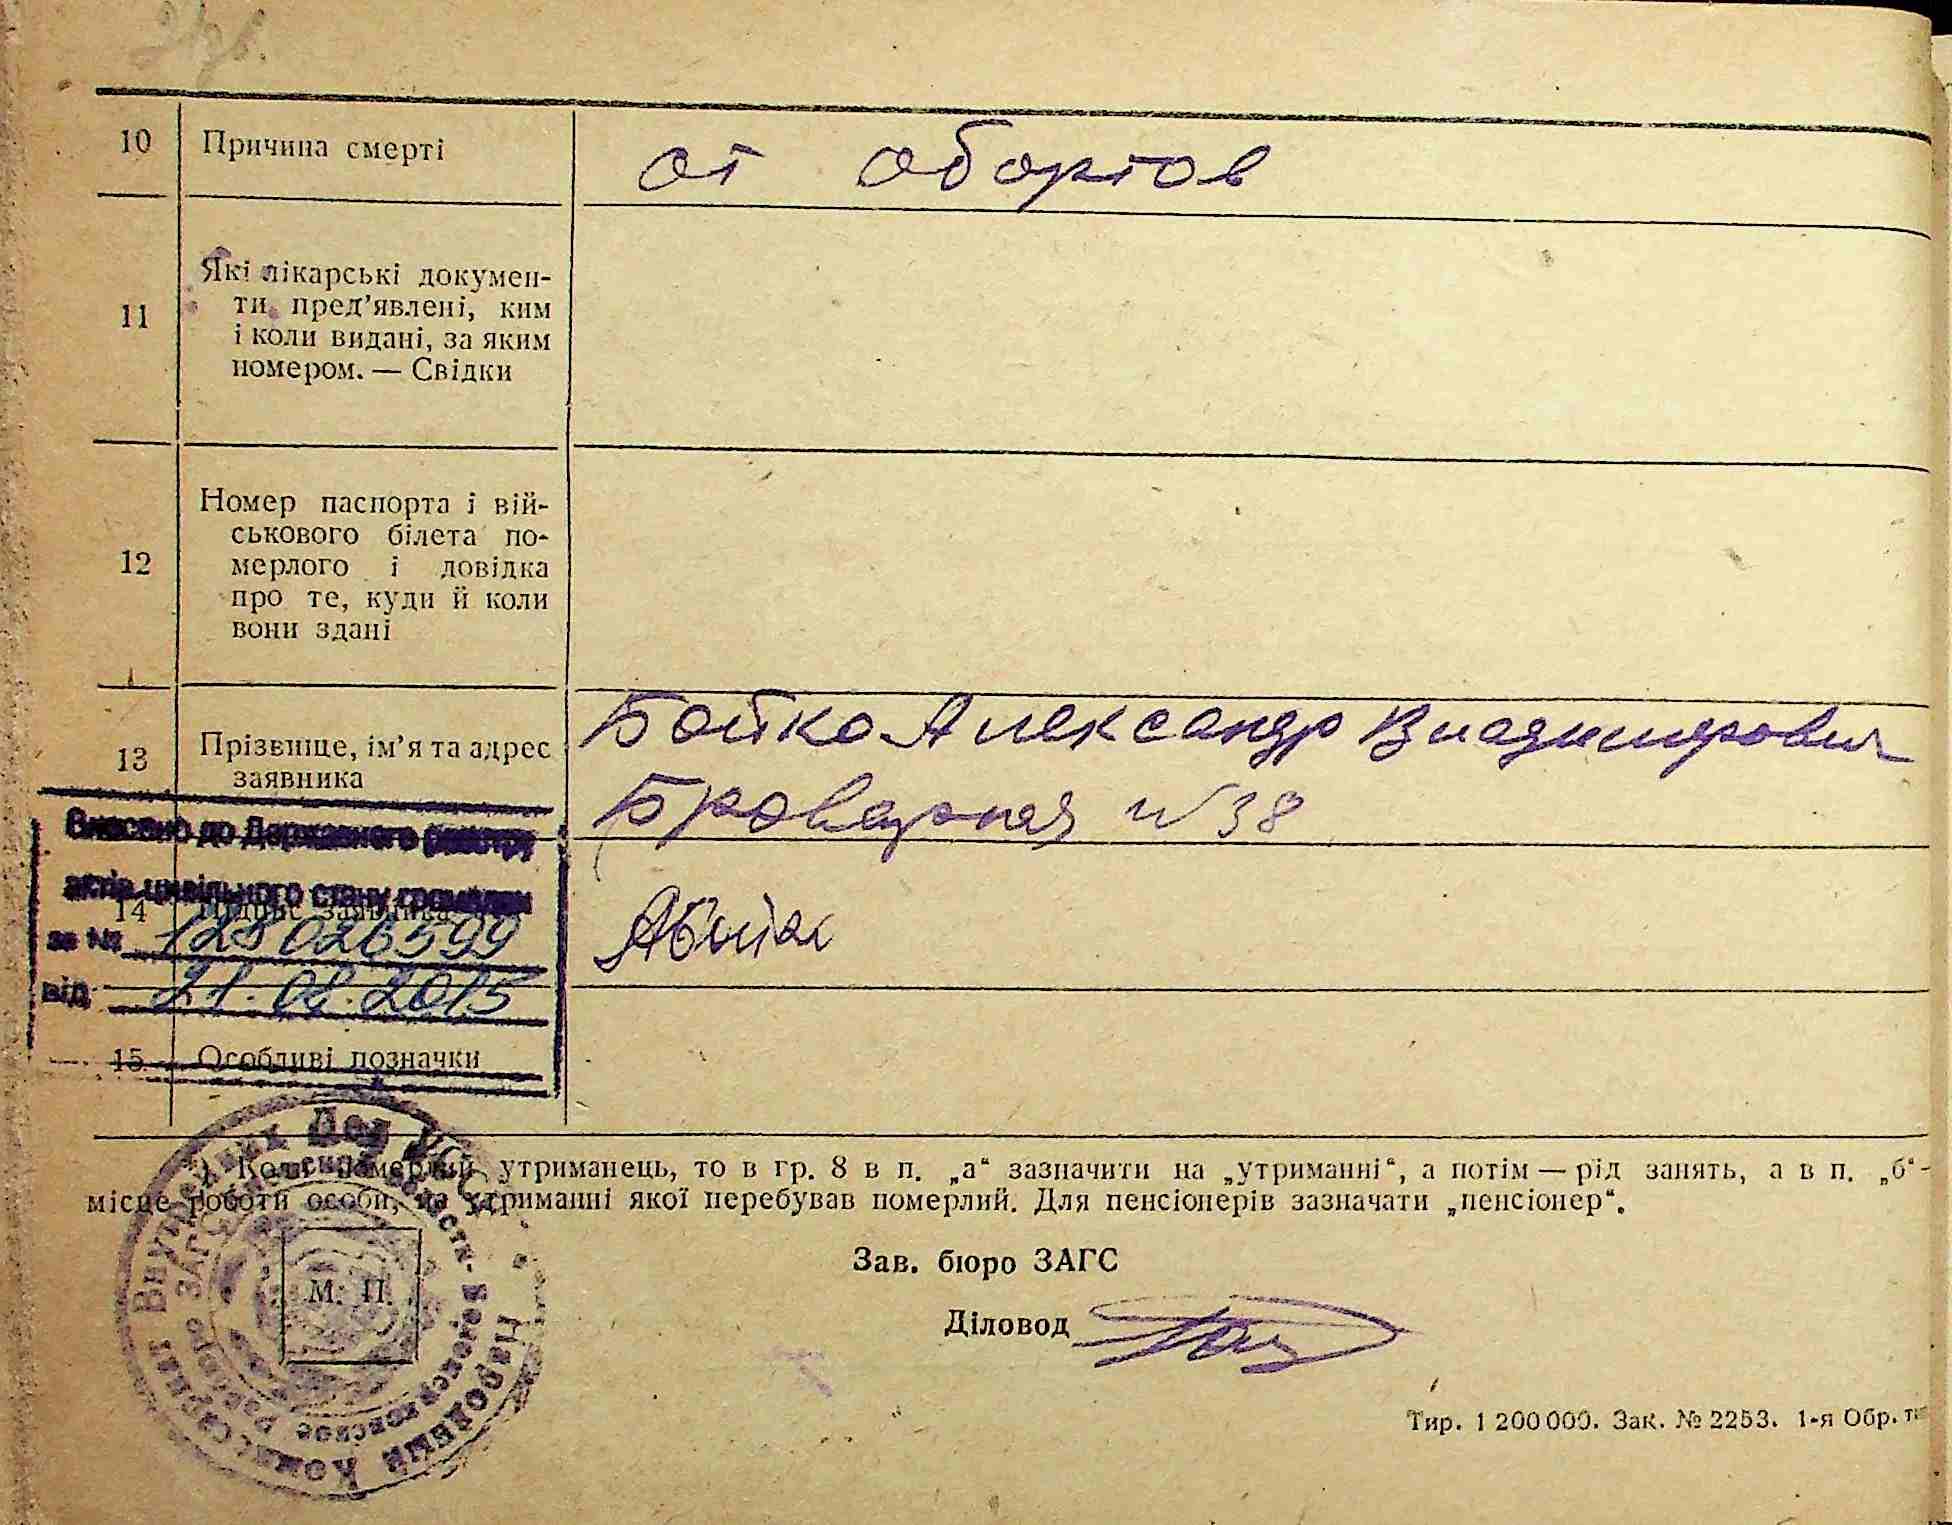 10 Причина смерті от абортов
11 Які лікарські докумен-
ти пред'явлені, ким
і коли видані, за яким
номером. — Свідки
12 Номер паспорта і вій-
ськового білета по-
мерлого і довідка
про те, куди й коли
вони здані
13 Прізвище, ім'я та адрес
заявника
Бойко Александр Владимирович
Броварная № 38
Внесено до Державного реєстру
актів цивільного стану громадян
14 Підпис заявника
за № 128026599
від 21.08.2015
15 Особливі позначки
*) Коли померлий утриманець, то в гр. 8 в п. „а“ зазначити на „утриманні“, а потім — рід занять, а в п. „б“-
місце роботи особи, на утриманні якої перебував померлий. Для пенсіонерів зазначати „пенсіонер“.
Зав. бюро ЗАГС
М. П.
Діловод
Народный Комиссариат Внутренних Дел
Тир. 1 200 000. Зак. № 2253. 1-я Обр.